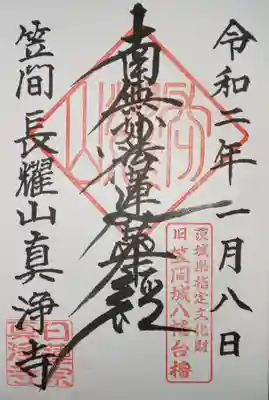 令和二年一月八日
茨城県指定文化財
旧笠間城八幡台櫓
南無妙法蓮華経
笠間 長耀山真浄寺
日蓮宗
真浄寺